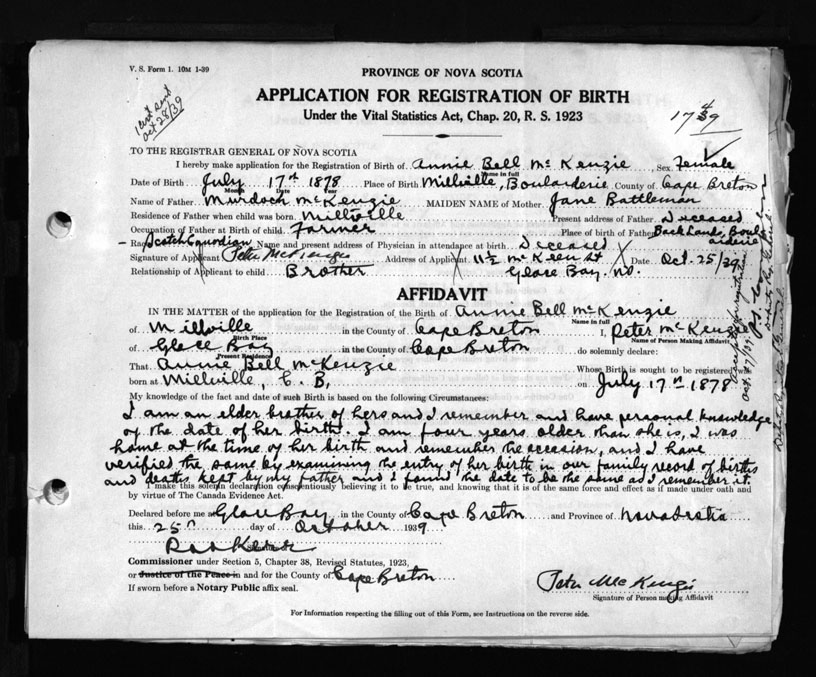 V. S. Form 1. 10M 1-39
PROVINCE OF NOVA SCOTIA
APPLICATION FOR REGISTRATION OF BIRTH
Under the Vital Statistics Act, Chap. 20, R. S. 1923
sent
Oct 28/39
TO THE REGISTRAR GENERAL OF NOVA SCOTIA
I hereby make application for the Registration of Birth of Annie Bell McKenzie Sex Female
Name in full
Date of Birth July 17th 1878 Place of Birth Millville, Boularderie County of Cape Breton
Month Date Year
Name of Father Murdoch McKenzie MAIDEN NAME of Mother Jane Battleman
Residence of Father when child was born Millville Present address of Father Deceased
Occupation of Father at Birth of child Farmer Place of birth of Father Back Lands, Boularderie
Race Scotch Canadian Name and present address of Physician in attendance at birth Deceased
Signature of Applicant Peter McKenzie Address of Applicant 11½ McKeen St Date Oct. 25/39
Relationship of Applicant to child Brother Glace Bay, N.S.
AFFIDAVIT
IN THE MATTER of the application for the Registration of the Birth of Annie Bell McKenzie
Name in full
of Millville in the County of Cape Breton I, Peter McKenzie
Birth Place Name of Person Making Affidavit
of Glace Bay in the County of Cape Breton do solemnly declare:
Present Residence
That Annie Bell McKenzie Whose Birth is sought to be registered was
born at Millville, C. B. on July 17th 1878
My knowledge of the fact and date of such Birth is based on the following Circumstances:
I am an elder brother of hers and I remember and have personal knowledge
of the date of her birth. I am four years older than she is, I was
home at the time of her birth and remember the occasion, and I have
verified the same by examining the entry of her birth in our family record of births
and deaths kept by my father and I found the date to be the same as I remember it.
I make this solemn declaration conscientiously believing it to be true, and knowing that it is of the same force and effect as if made under oath and
by virtue of The Canada Evidence Act.
Declared before me at Glace Bay in the County of Cape Breton and Province of Nova Scotia
this 25th day of October 1939
Commissioner under Section 5, Chapter 38, Revised Statutes, 1923,
or Justice of the Peace in and for the County of Cape Breton
If sworn before a Notary Public affix seal.
Peter McKenzie
Signature of Person making Affidavit
For Information respecting the filling out of this Form, see Instructions on the reverse side.
Accepted for registration